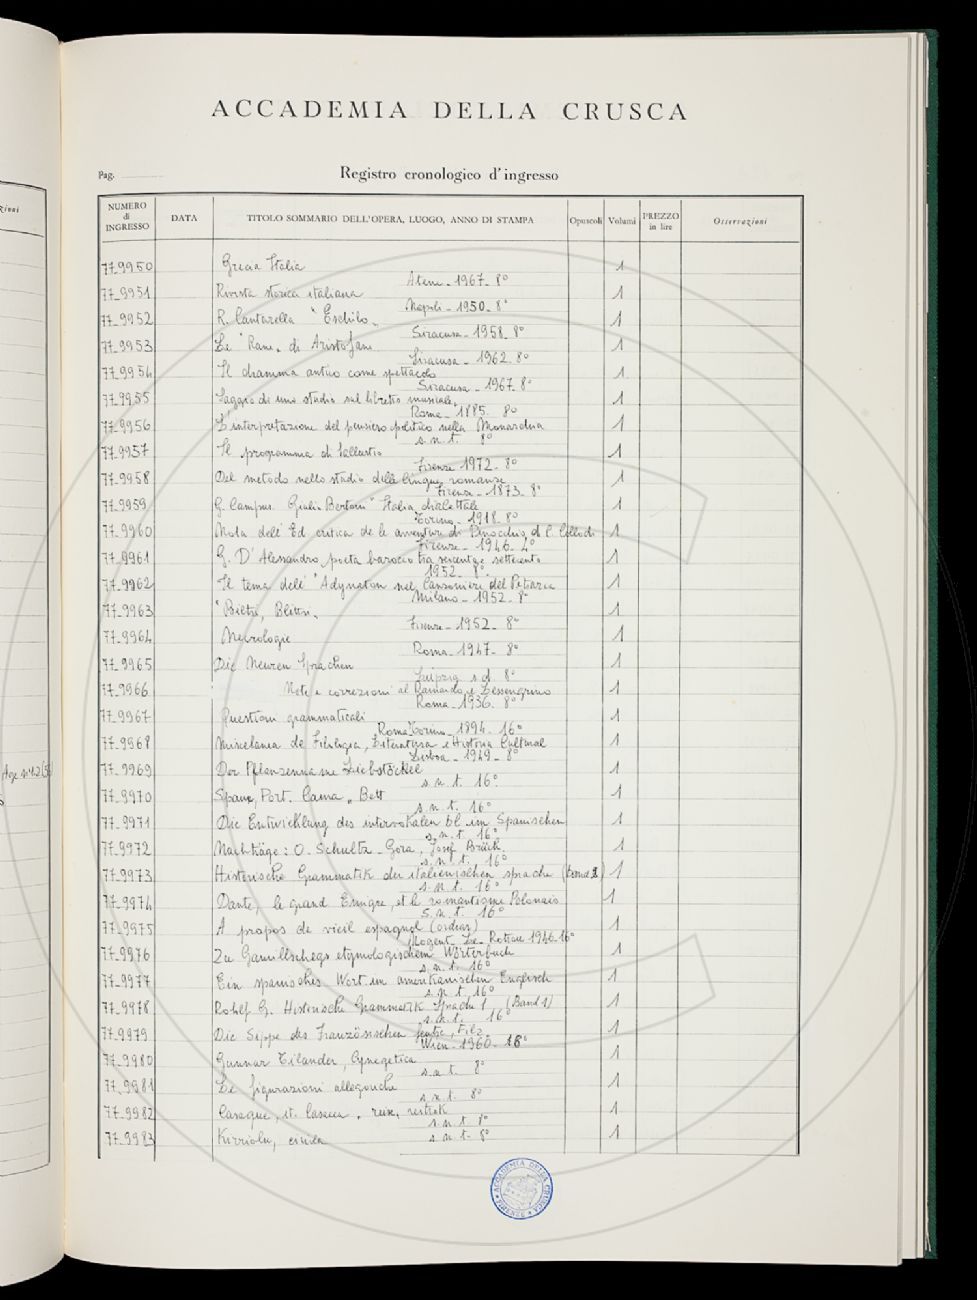 ACCADEMIA DELLA CRUSCA
Pag.
Registro cronologico d'ingresso
NUMERO di INGRESSO DATA TITOLO SOMMARIO DELL'OPERA, LUOGO, ANNO DI STAMPA Opuscoli Volumi PREZZO in lire Osservazioni
77-9950 Grecia Italia 1
Atene - 1967 - 8°
77-9951 Rivista storica italiana 1
Napoli - 1950 - 8°
77-9952 R. Cantarella "Eschilo" 1
Siracusa - 1958 - 8°
77-9953 Le "Rane" di Aristofane 1
Siracusa - 1962 - 8°
77-9954 Il dramma antico come spettacolo 1
Siracusa - 1967 - 8°
77-9955 Saggio di uno studio sul libretto musicale 1
Roma - 1885 - 8°
77-9956 L'interpretazione del pensiero politico nella Monarchia 1
s.n.t. 8°
77-9957 Il programma di Sallustio 1
Firenze 1972 - 8°
77-9958 Del metodo nello studio delle lingue romanze 1
Firenze - 1873 - 8°
77-9959 G. Campus Giulio Bertoni "Italia dialettale 1
Torino - 1918 - 8°
77-9960 Nota dell'Ed critica de le avventure di Pinocchio, di C. Collodi 1
Firenze - 1946 - 4°
77-9961 G. D'Alessandro, poeta barocco tra seicento e settecento 1
1952 - 8°
77-9962 Il tema dell'"Adynaton nel Canzoniere del Petrarca 1
Milano - 1952 - 8°
77-9963 "Bieltri, Blittri" 1
Firenze - 1952 - 8°
77-9964 Necrologie 1
Roma - 1947 - 8°
77-9965 Die Neuren Sprachen 1
Leipzig s.d. 8°
77-9966 Note e correzioni al Rainardo e Lesengrino 1
Roma - 1936 - 8°
77-9967 Questioni grammaticali 1
Roma Torino - 1894 - 16°
77-9968 Miscelanea de Filologia, Literatura e Historia Cultural 1
Lisboa - 1949 - 8°
77-9969 Der Pflanzenname Liebstöckel 1
s.n.t. 16°
77-9970 Span, Port. Cama "Bett 1
s.n.t. 16°
77-9971 Die Entwicklung des intervokalen bl im Spanischen 1
s.n.t. 16°
77-9972 Nachträge: O. Schultz-Gora, Josef Brüch 1
s.n.t. 16°
77-9973 Historische Grammatik der italienischen sprache (Band II) 1
s.n.t. 16°
77-9974 Dante, le grand Emigre, et le romantisme Polonais 1
s.n.t. 16°
77-9975 A propos de vieil espagnol (ordias) 1
Nogent-Le-Rotrou 1946 - 16°
77-9976 Zu Gamillschegs etymologischem Wörterbuch 1
s.n.t. 16°
77-9977 Ein spanisches Wort im amerikanischen Englisch 1
s.n.t. 16°
77-9978 Rohlfs G. Historische Grammatik Sprache 1 (Band 1) 1
s.n.t. 16°
77-9979 Die Sippe des Französischen feutre, Filz 1
Wien - 1960 - 16°
77-9980 Gunnar Tilander, Cynegetica 1
s.n.t. 8°
77-9981 Le figurazioni allegoriche 1
s.n.t. 8°
77-9982 Casaque, it. casacca 1
s.n.t. 8°
77-9983 1
s.n.t. 8°
ACCADEMIA DELLA CRUSCA FIRENZE